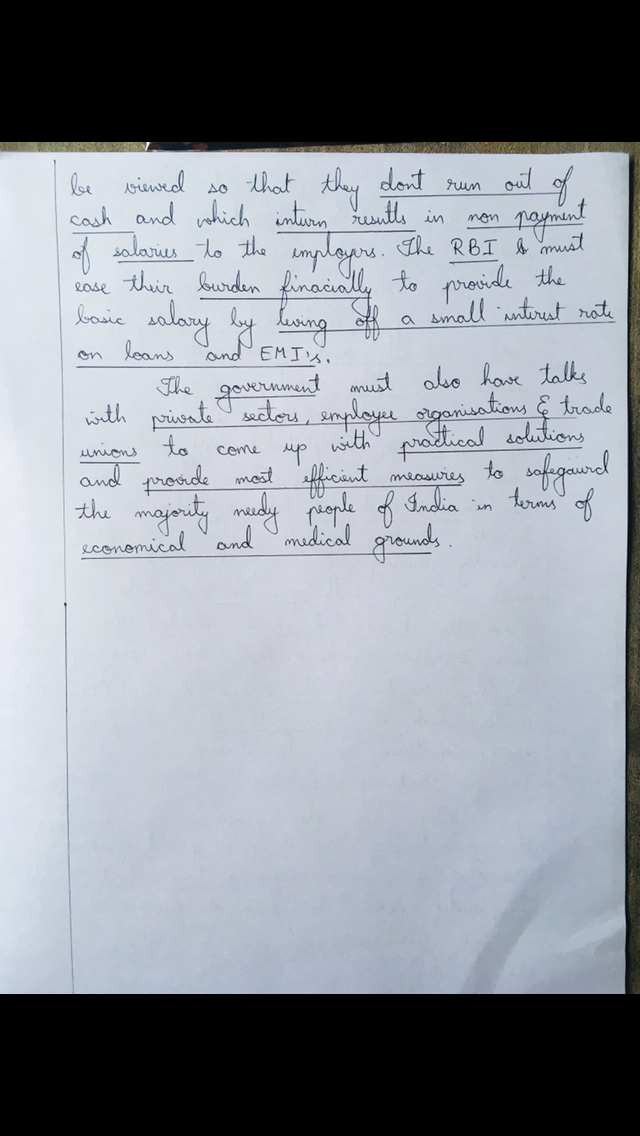 be viewed so that they dont run out of
cash and which inturn results in non payment
of salaries to the employers. The RBI must
ease their burden finacially to provide the
basic salary by living off a small interist rate
on loans and EMI's.
The government must also have talks
with private sectors, employee organisations & trade
unions to come up with practical solutions
and provide most efficient measures to safegaurd
the majority needy people of India in terms of
economical and medical grounds.